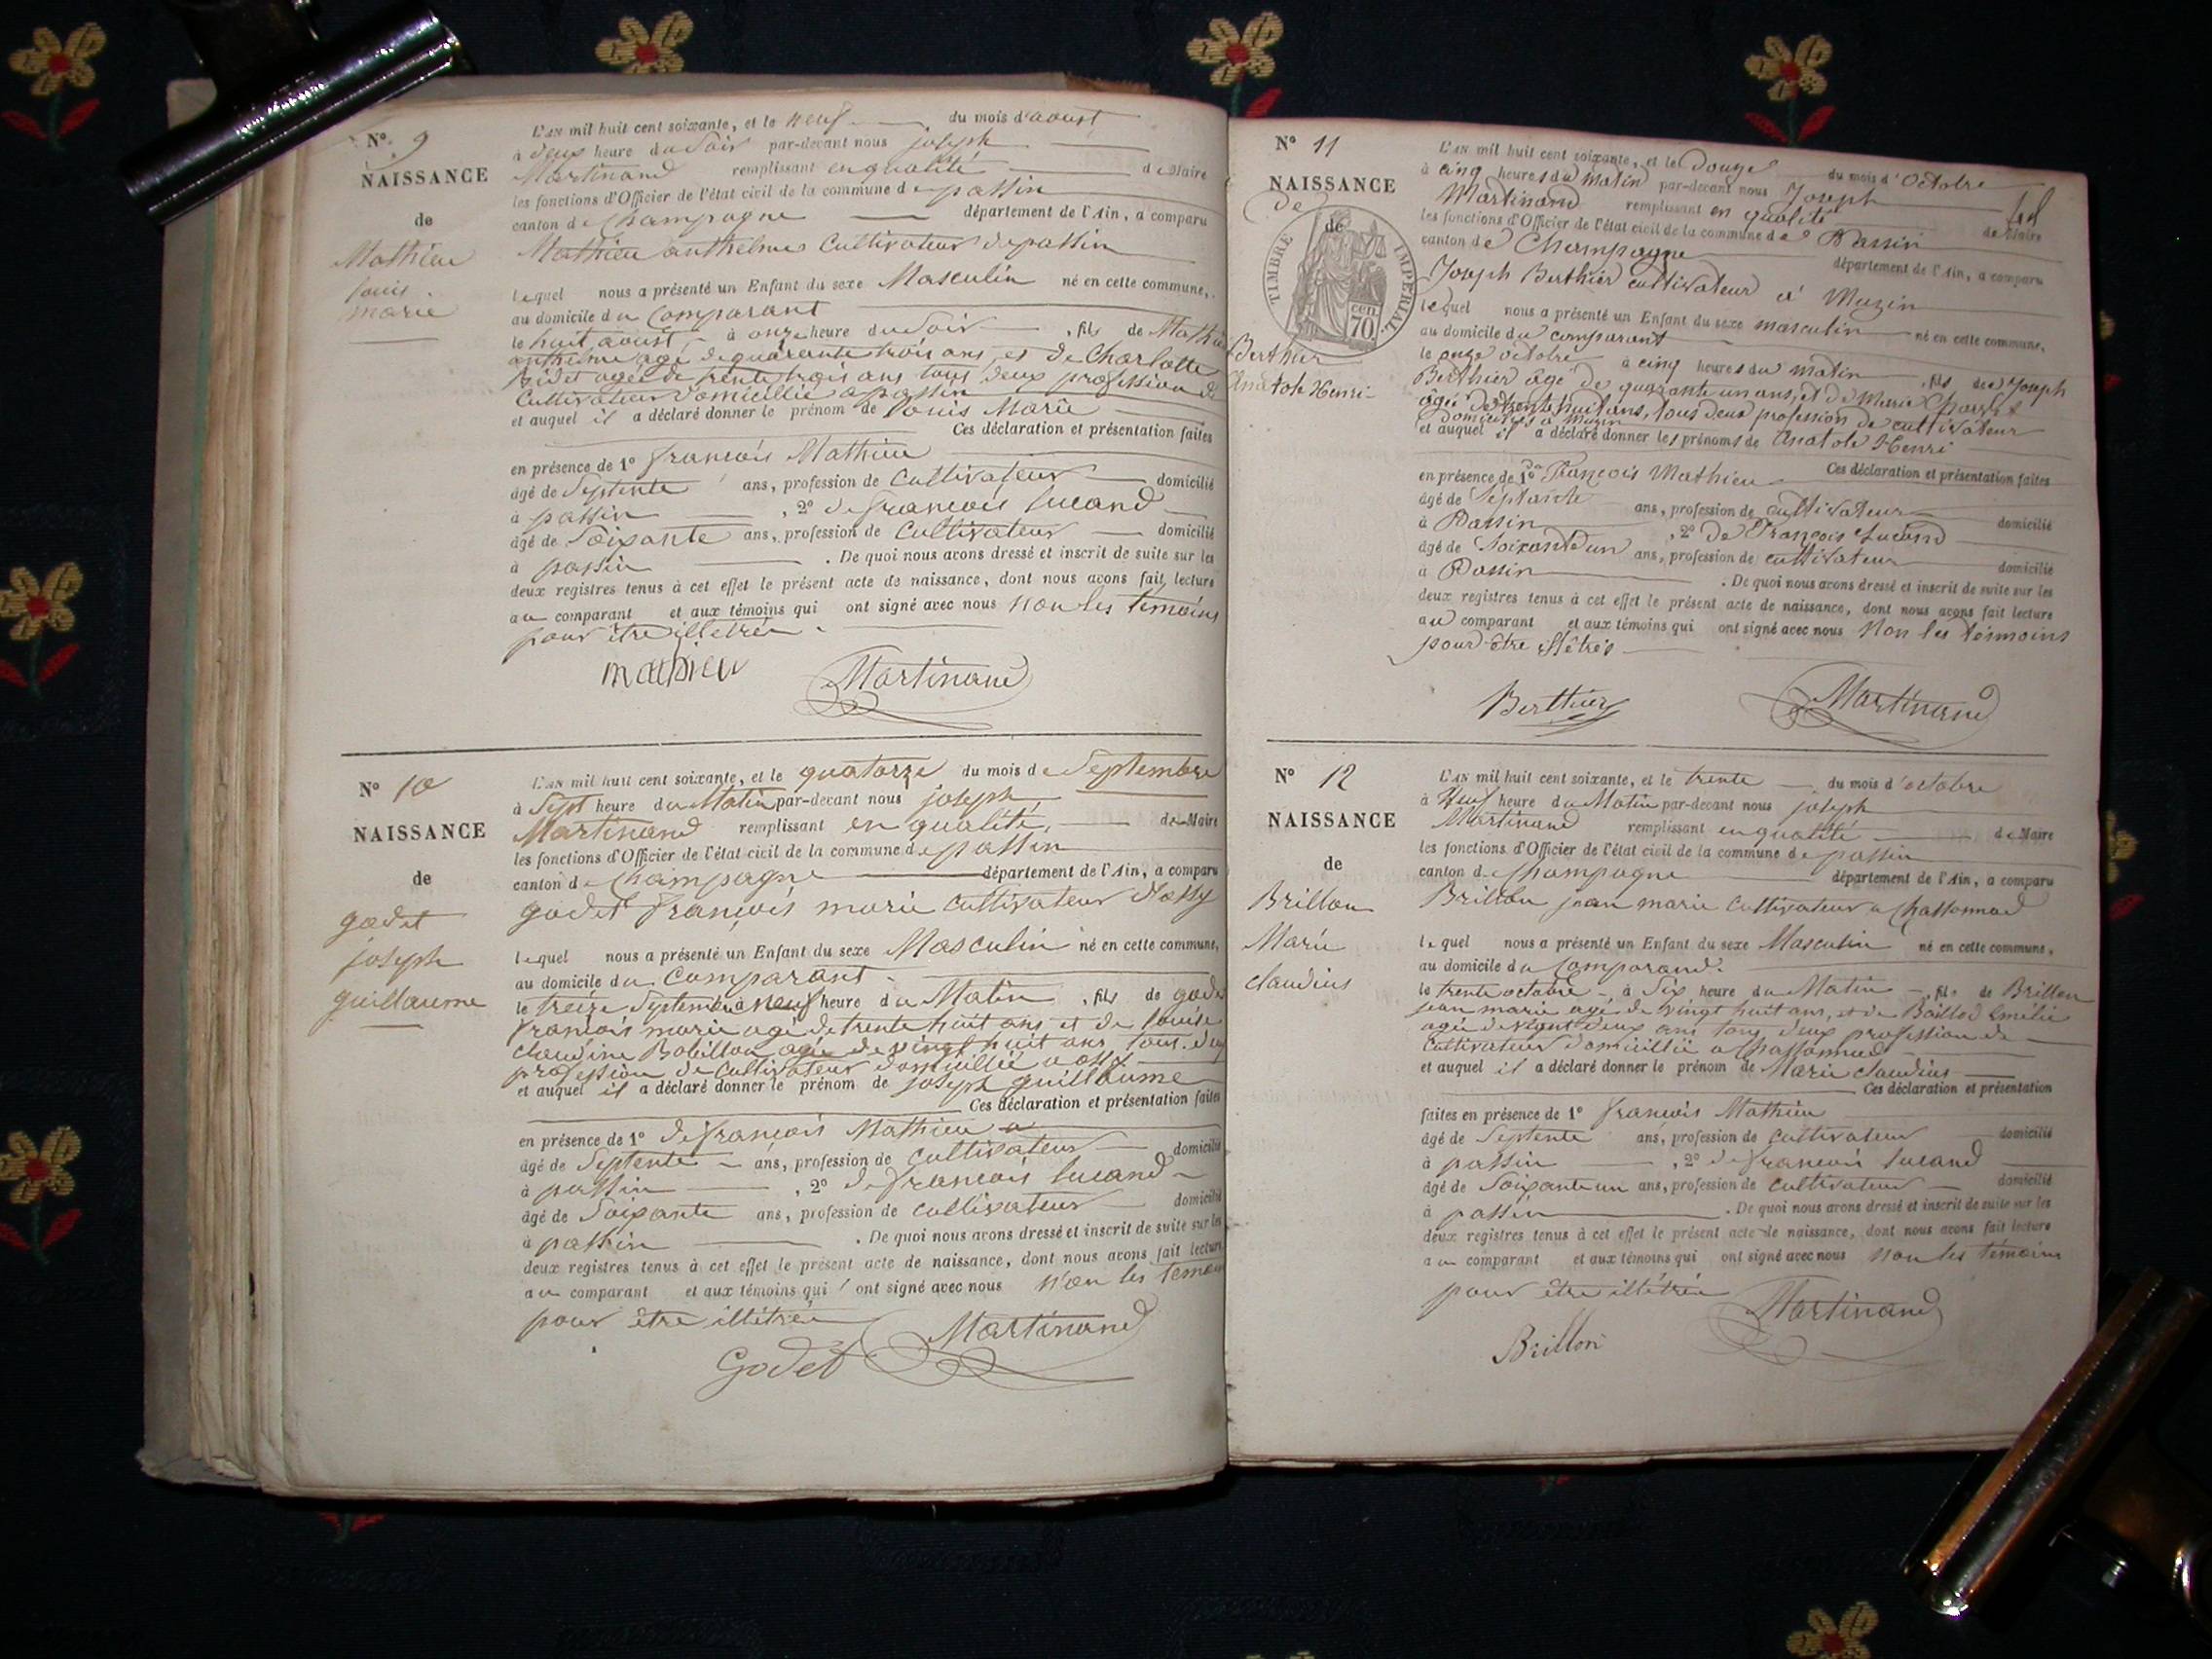 N° 9
NAISSANCE
de
Mathieu
louis
marie
L'AN mil huit cent soixante, et le neuf du mois d'aoust
à deux heure du Soir par-devant nous joseph
Martinand remplissant en qualité de Maire
les fonctions d'Officier de l'état civil de la commune de passin
canton de Champagne département de l'Ain, a comparu
Mathieu anthelme Cultivateur de passin
lequel nous a présenté un Enfant du sexe Masculin né en cette commune,
au domicile du Comparant
le huit aoust à onze heure du Soir, fils de Mathieu
anthelme agé de quarante trois ans, et de Charlotte
agée de trente trois ans tous deux profession de
Cultivateur domicillié a passin
et auquel il a déclaré donner le prénom de louis Marie
Ces déclaration et présentation faites
en présence de 1° françois Mathieu
âgé de Septente ans, profession de Cultivateur domicilié
à passin, 2° de françois lucand
âgé de Soixante ans, profession de Cultivateur domicilié
à passin. De quoi nous avons dressé et inscrit de suite sur les
deux registres tenus à cet effet le présent acte de naissance, dont nous avons fait lecture
au comparant et aux témoins qui ont signé avec nous non les témoins
pour être illetrée.
mathieu Martinand
N° 10
NAISSANCE
de
godet
joseph
guillaume
L'AN mil huit cent soixante, et le quatorze du mois de Septembre
à Sept heure du Matin par-devant nous joseph
Martinand remplissant en qualité de Maire
les fonctions d'Officier de l'état civil de la commune de passin
canton de Champagne département de l'Ain, a comparu
godet françois marie cultivateur d'ossy
lequel nous a présenté un Enfant du sexe Masculin né en cette commune,
au domicile du Comparant.
le treize Septembre à neuf heure du Matin, fils de godet
françois marie agé de trente huit ans et de louise
claudine agée de vingt huit ans tous deux
profession de Cultivateur domicillié a ossy
et auquel il a déclaré donner le prénom de joseph guillaume
Ces déclaration et présentation faites
en présence de 1° de françois Mathieu
âgé de Septente ans, profession de Cultivateur domicilié
à passin, 2° de françois lucand
âgé de Soixante ans, profession de cultivateur domicilié
à passin. De quoi nous avons dressé et inscrit de suite sur les
deux registres tenus à cet effet le présent acte de naissance, dont nous avons fait lecture
au comparant et aux témoins qui ont signé avec nous non les temoins
pour être illétrée
Godet Martinand
N° 11
NAISSANCE
de
de
TIMBRE IMPÉRIAL
70 cen
Berthier
Anatole Henri
L'AN mil huit cent soixante, et le Douze du mois d'Octobre
à cinq heures du matin par-devant nous Joseph
Martinand remplissant en qualité de Maire
les fonctions d'Officier de l'état civil de la commune de Passin
canton de Champagne département de l'Ain, a comparu
Joseph Berthier cultivateur à Muzin
lequel nous a présenté un Enfant du sexe masculin né en cette commune,
au domicile du comparant
le onze octobre à cinq heures du matin, fils de Joseph
Berthier âgé de quarante un ans, et de Marie
âgée de trente huit ans, tous deux profession de cultivateur
domiciliés à Muzin
et auquel il a déclaré donner les prénoms de Anatole Henri
Ces déclaration et présentation faites
en présence de 1° De François Mathieu
âgé de Septante ans, profession de cultivateur domicilié
à Passin, 2° De François Lucand
âgé de Soixante un ans, profession de cultivateur domicilié
à Passin. De quoi nous avons dressé et inscrit de suite sur les
deux registres tenus à cet effet le présent acte de naissance, dont nous avons fait lecture
au comparant et aux témoins qui ont signé avec nous Non les témoins
pour être illétrés
Berthier Martinand
N° 12
NAISSANCE
de
Brillon
Marie
claudius
L'AN mil huit cent soixante, et le trente du mois d'octobre
à Neuf heure du Matin par-devant nous joseph
Martinand remplissant en qualité de Maire
les fonctions d'Officier de l'état civil de la commune de passin
canton de Champagne département de l'Ain, a comparu
Brillon jean marie Cultivateur a Chassonnod
lequel nous a présenté un Enfant du sexe Masculin né en cette commune,
au domicile du Comparand.
le trente octobre à Six heure du Matin, fils de Brillon
jean marie agé de vingt huit ans, et de émélie
agée de vingt deux ans tous deux profession de
Cultivateur domicillié a Chassonnod
et auquel il a déclaré donner le prénom de Marie claudius
Ces déclaration et présentation
faites en présence de 1° françois Mathieu
âgé de Septente ans, profession de Cultivateur domicilié
à passin, 2° de françois lucand
âgé de Soixante un ans, profession de Cultivateur domicilié
à passin. De quoi nous avons dressé et inscrit de suite sur les
deux registres tenus à cet effet le présent acte de naissance, dont nous avons fait lecture
au comparant et aux témoins qui ont signé avec nous non les témoins
pour être illétrée
Brillon Martinand